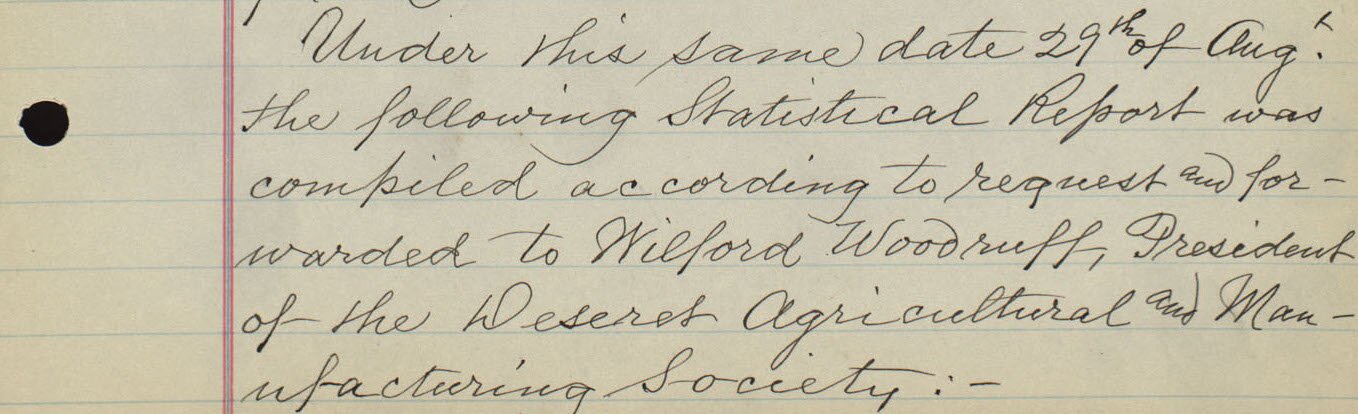 Under this same date 29th of Augt.
the following Statistical Report was
compiled according to request and for-
warded to Wilford Woodruff, President
of the Deseret Agricultural and Man-
ufacturing Society:-